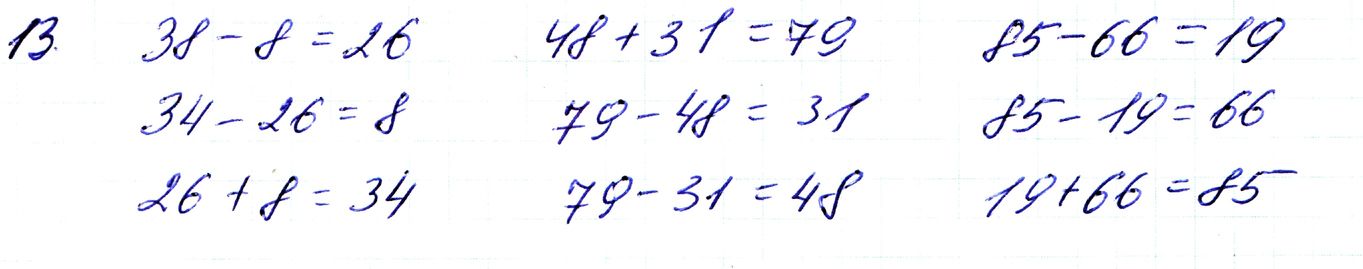 13. 38 - 8 = 26 48 + 31 = 79 85 - 66 = 19
34 - 26 = 8 79 - 48 = 31 85 - 19 = 66
26 + 8 = 34 79 - 31 = 48 19 + 66 = 85